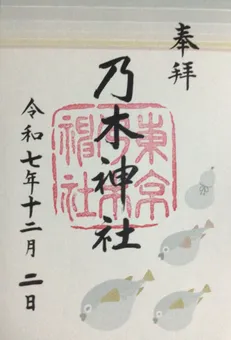 奉拝
乃木神社
東京
乃木
神社
令和七年十二月二日